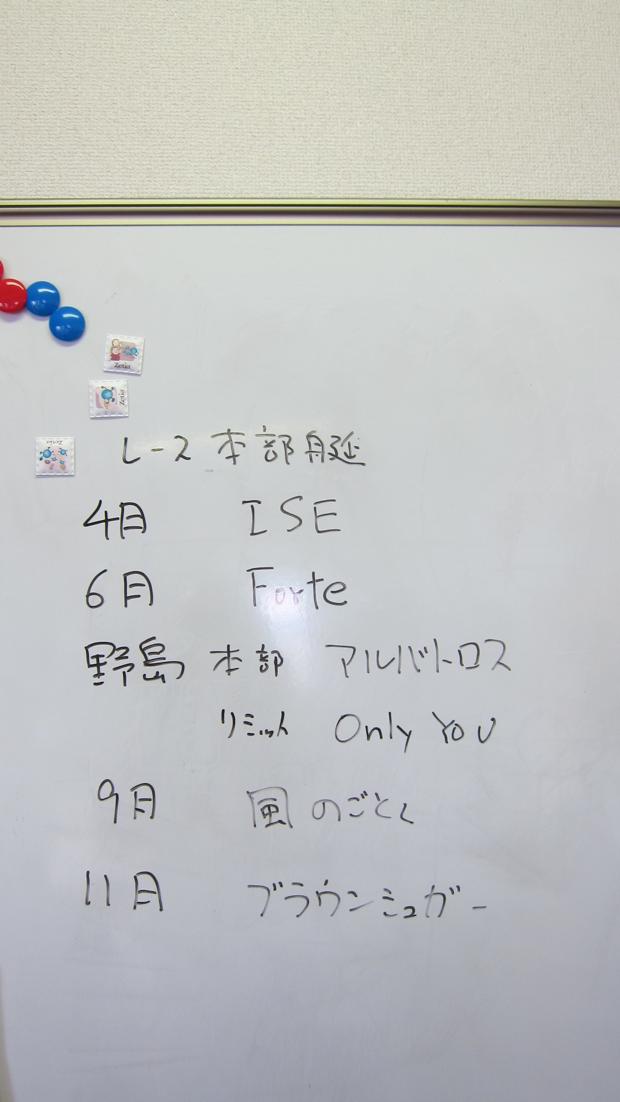 Zetia
Zetia
Zetia
レース 本部艇
4月 ISE
6月 Forte
野島 本部 アルバトロス
リミット Only You
9月 風のごとく
11月 ブラウンシュガー